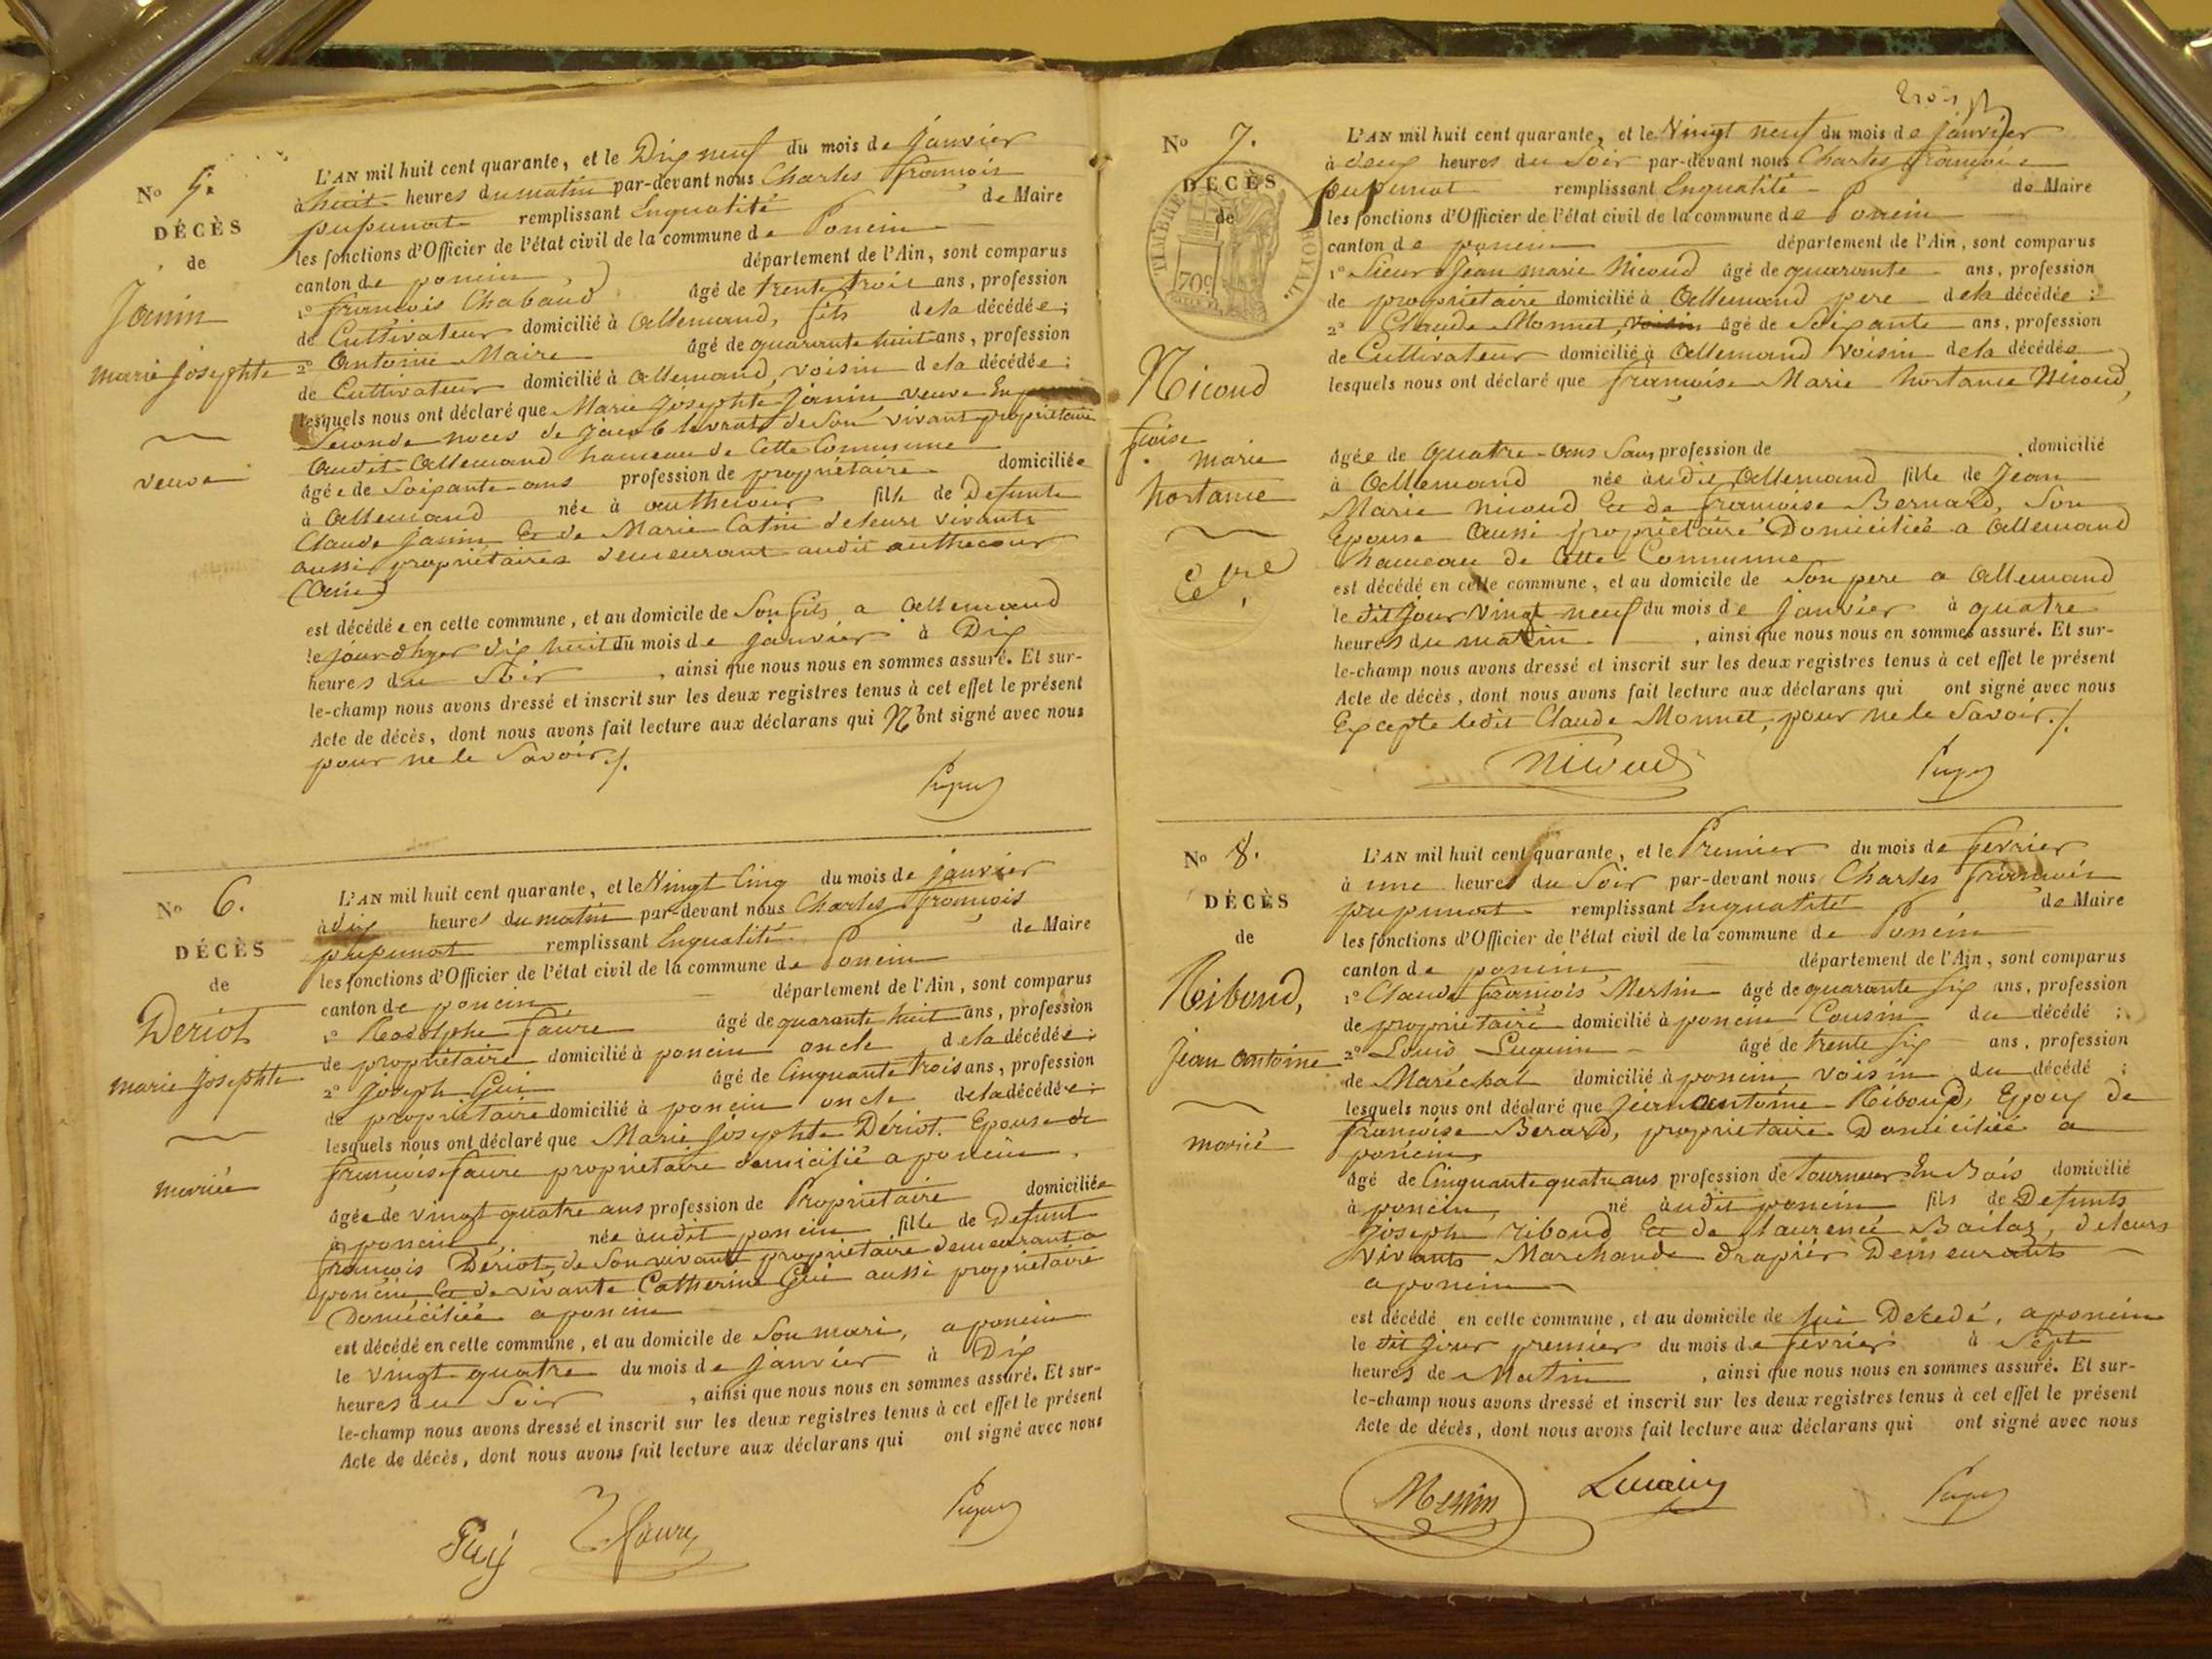 No 5.
DÉCÈS
de
Janin
marie Josephte
veuve
L'AN mil huit cent quarante, et le Dix neuf du mois de Janvier
à huit heures du matin par-devant nous Charles François
pupunat remplissant Enqualité de Maire
les fonctions d'Officier de l'état civil de la commune de Poncin
canton de poncin département de l'Ain, sont comparus
1º françois Chabaud âgé de trente trois ans, profession
de Cultivateur domicilié à Allemand, fils de la décédée;
2º Antoine Maire âgé de quarante huit ans, profession
de Cultivateur domicilié à Allemand, voisin de la décédée;
lesquels nous ont déclaré que Marie Josephte Janin veuve En
Seconde noces de Jacob levrat de Son vivant propriétaire
audit Allemand hameau de Cette Commune
âgée de Soixante ans profession de propriétaire domiciliée
à Allemand née à authecour fille de Defunte
Claude Janin Et de Marie Catin de leurs vivants
aussi propriétaires demeurant audit authecour
(Ain)
est décédée en cette commune, et au domicile de Son fils a Allemand
le jour d'hyer dix huit du mois de janvier à Dix
heures du Soir, ainsi que nous nous en sommes assuré. Et sur-
le-champ nous avons dressé et inscrit sur les deux registres tenus à cet effet le présent
Acte de décès, dont nous avons fait lecture aux déclarans qui N'ont signé avec nous
pour ne le Savoir./.
No 6.
DÉCÈS
de
Deriot
marie Josephte
mariée
L'AN mil huit cent quarante, et le Vingt Cinq du mois de janvier
à dix heures du matin par-devant nous Charles François
pupunat remplissant Enqualité de Maire
les fonctions d'Officier de l'état civil de la commune de Poncin
canton de poncin département de l'Ain, sont comparus
1º Rodolphe faure âgé de quarante huit ans, profession
de propriétaire domicilié à poncin oncle de la décédée;
2º Joseph Gui âgé de Cinquante trois ans, profession
de propriétaire domicilié à poncin oncle de la décédée;
lesquels nous ont déclaré que Marie Josephte Dériot. Epouse de
françois faure propriétaire domicilié a poncin.
âgée de vingt quatre ans profession de Propriétaire domiciliée
à poncin, née audit poncin fille de Defunt
françois Dériot, de Son vivant propriétaire demeurant a
poncin Et de vivante Catherine Gui aussi propriétaire
Domiciliée a poncin
est décédé en cette commune, et au domicile de Son mari, a poncin
le vingt quatre du mois de janvier à Dix
heures du Soir, ainsi que nous nous en sommes assuré. Et sur-
le-champ nous avons dressé et inscrit sur les deux registres tenus à cet effet le présent
Acte de décès, dont nous avons fait lecture aux déclarans qui ont signé avec nous
Guy Rfaure
trois
No 7.
DÉCÈS
de
TIMBRE ROYAL.
70c
Nicoud
fcoise
marie
hortance
L'AN mil huit cent quarante, et le Vingt neuf du mois de janvier
à deux heures du Soir par-devant nous Charles françois
pupunat remplissant Enqualité de Maire
les fonctions d'Officier de l'état civil de la commune de Poncin
canton de poncin département de l'Ain, sont comparus
1º Sieur Jean marie Nicoud âgé de quarante ans, profession
de propriétaire domicilié à Allemand pere de la décédée;
2º Claude Monnet, voisin âgé de Soixante ans, profession
de Cultivateur domicilié à Allemand voisin de la décédée
lesquels nous ont déclaré que françoise Marie hortance Nicoud,
âgée de quatre ans Sans profession de domicilié
à Allemand née audit Allemand fille de Jean
Marie nicoud Et de françoise Bernard, Son
Epouse aussi propriétaire Domiciliée a Allemand
hameau de Cette Commune
est décédé en cette commune, et au domicile de Son pere a Allemand
le dit jour vingt neuf du mois de janvier à quatre
heures du matin, ainsi que nous nous en sommes assuré. Et sur-
le-champ nous avons dressé et inscrit sur les deux registres tenus à cet effet le présent
Acte de décès, dont nous avons fait lecture aux déclarans qui ont signé avec nous
Excepte ledit Claude Monnet, pour ne le Savoir./.
Nicoud
No 8.
DÉCÈS
de
Riboud,
jean antoine
marié
L'AN mil huit cent quarante, et le Premier du mois de fevrier
à une heures du Soir par-devant nous Charles françois
pupunat remplissant Enqualité de Maire
les fonctions d'Officier de l'état civil de la commune de Poncin
canton de poncin département de l'Ain, sont comparus
1º Claude françois Merlin âgé de quarante six ans, profession
de propriétaire domicilié à poncin Cousin du décédé;
2º Louis Luquin âgé de trente six ans, profession
de Maréchal domicilié à poncin, voisin du décédé;
lesquels nous ont déclaré que Jean antoine Riboud, Epoux de
françoise Berard, propriétaire Domiciliée a
poncin,
âgé de Cinquante quatre ans profession de Tourneur En Bois domicilié
à poncin, né audit poncin fils de Defunts
Joseph riboud Et de laurence Bailas, de leurs
vivants Marchands drapier Demeurants
a poncin
est décédé en cette commune, et au domicile de lui Décédé, a poncin
le dit jour premier du mois de fevrier à Sept
heures de Matin, ainsi que nous nous en sommes assuré. Et sur-
le-champ nous avons dressé et inscrit sur les deux registres tenus à cet effet le présent
Acte de décès, dont nous avons fait lecture aux déclarans qui ont signé avec nous
Merlin Luquin